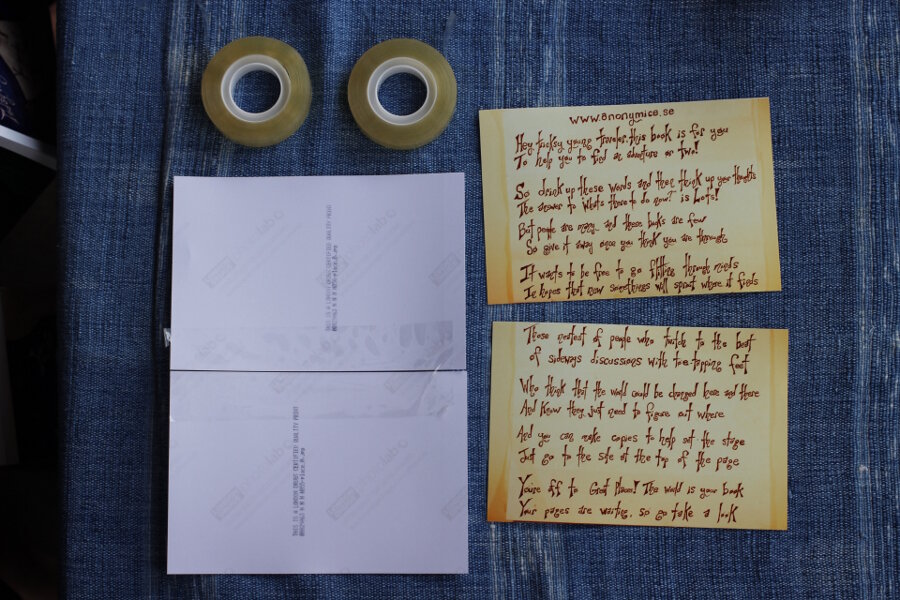 www.anonymice.se
Hey tricksy young traveler, this book is for you
To help you to find an adventure or two!
So drink up these words and then think up your thoughts
The answer to whats there to do now? is Lots!
But people are many and these books are few
So give it away once you think you are through
It wants to be free to go flitting through minds
It hopes that new somethings will sprout where it finds
Those nerfest of people who twitch to the beat
of sideways discussions with toe-tapping feet
Who think that the world could be changed here and there
And know they just need to figure out where
And you can make copies to help set the stage
Just go to the site at the top of the page
You're off to Great Places! The world is your book
Your pages are waiting, so go take a look
THIS IS A LONDON DRUGS CERTIFIED QUALITY PRINT
THIS IS A LONDON DRUGS CERTIFIED QUALITY PRINT